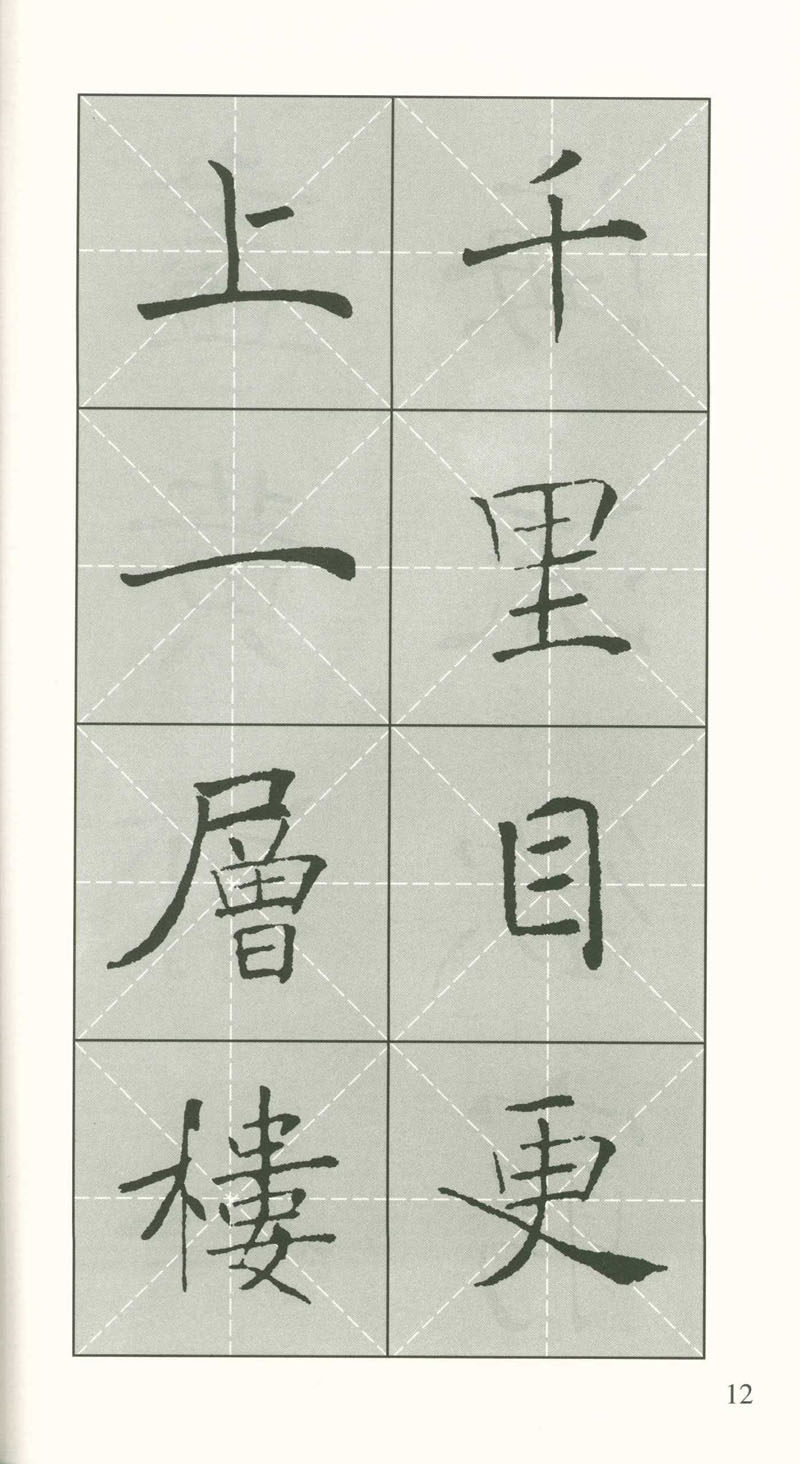 千里目更
上一層樓
12